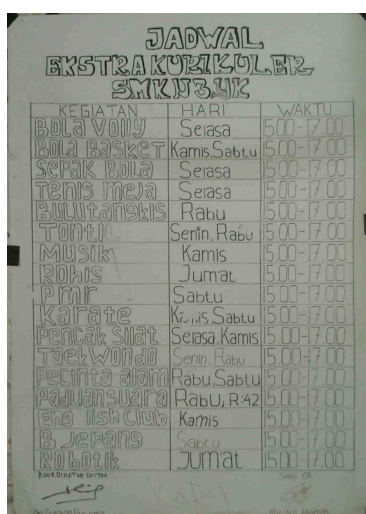 JADWAL
EKSTRAKURIKULER
SMKN3.YK
KEGIATAN HARI WAKTU
BOLA VOLLY Selasa 15.00-17.00
BOLA BASKET Kamis,Sabtu 15.00-17.00
SEPAK BOLA Selasa 15.00-17.00
Tenis meja Selasa 15.00-17.00
BULUtangkis Rabu 15.00-17.00
TONTI Senin, Rabu 15.00-17.00
MUSIK Kamis 15.00-17.00
ROhis Jum'at 15.00-17.00
Pmr Sabtu 15.00-17.00
Karate Kamis,Sabtu 15.00-17.00
Pencak Silat Selasa,Kamis 15.00-17.00
TaeKWondo Senin, Rabu 15.00-17.00
Pecinta alam Rabu,Sabtu 15.00-17.00
Paduan suara Rabu, R:42 15.00-17.00
English Club Kamis 15.00-17.00
B. Jepang Sabtu 15.00-17.00
Robotik Jum'at 15.00-17.00
KOORDINATOR EKSTRA